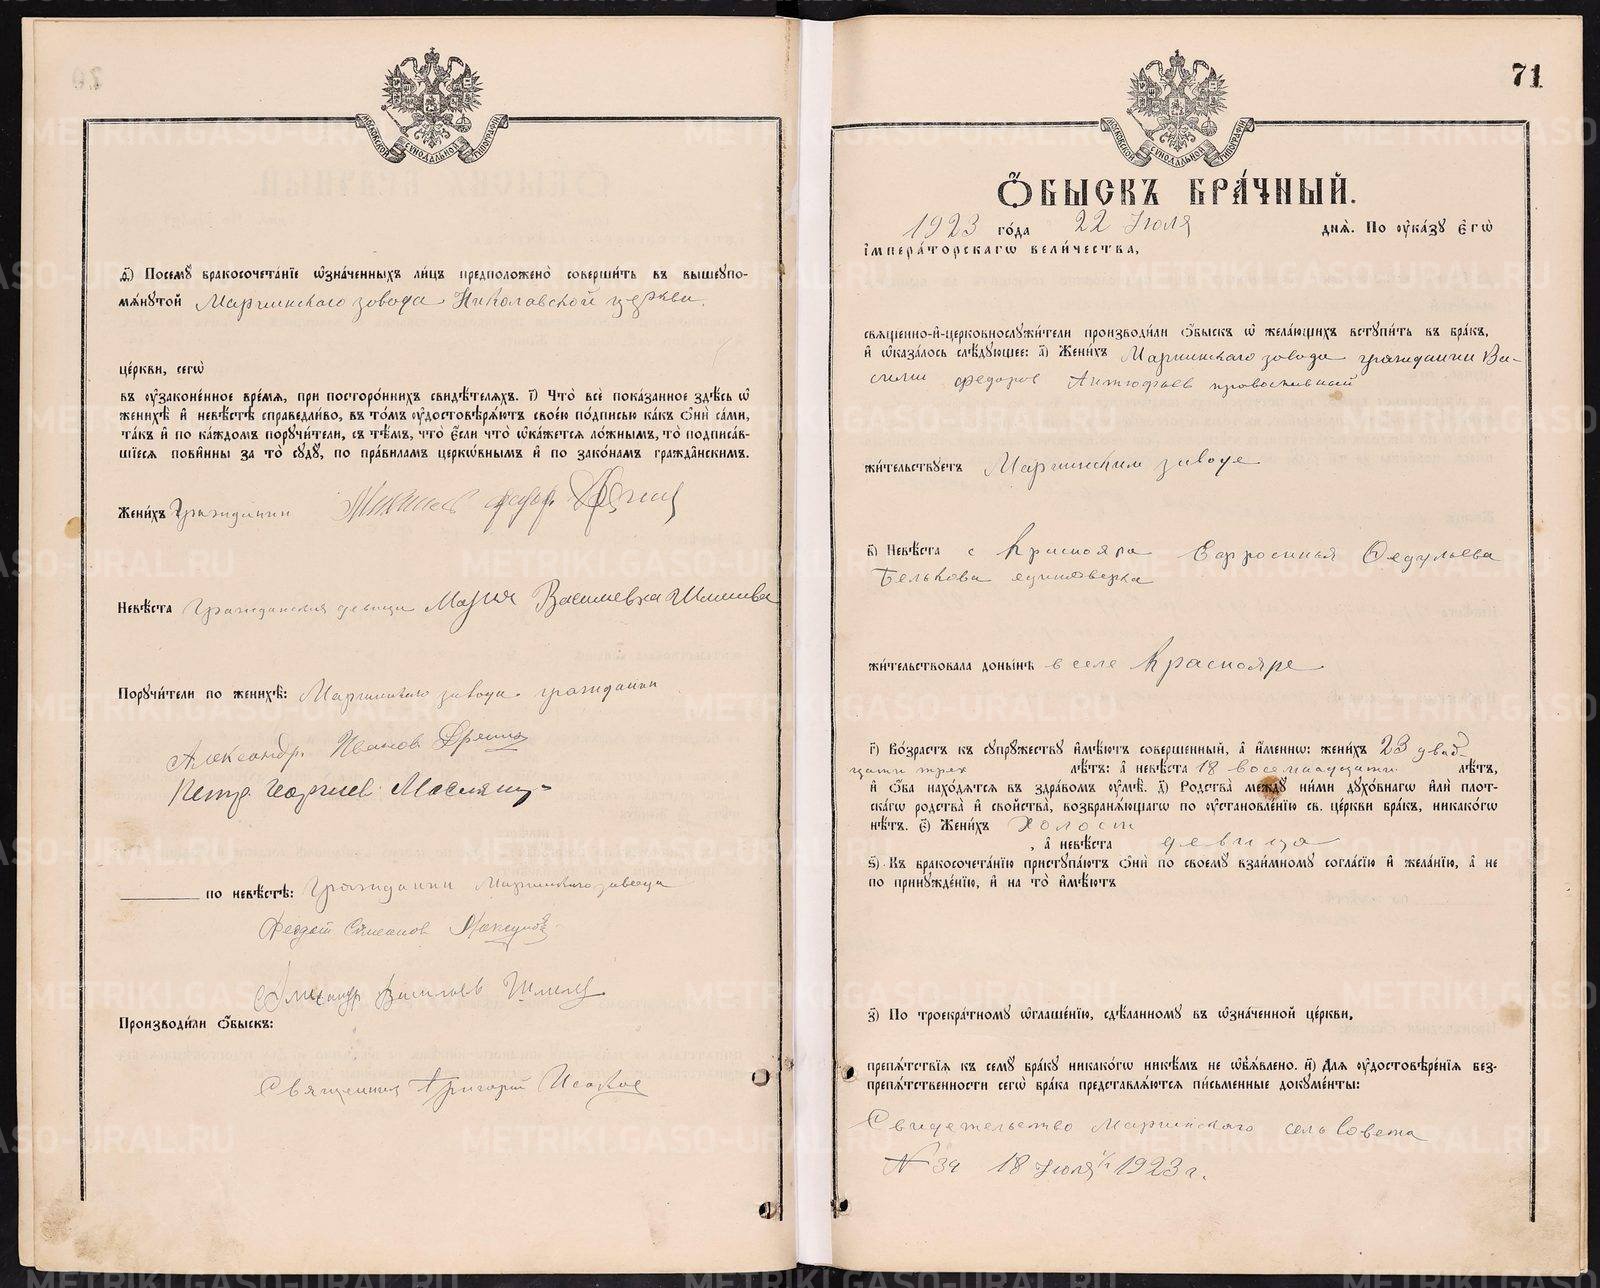 МОСКОВСКОЙ СѴНОДАЛЬНОЙ ТИПОГРАФІИ
д҃) Посемꙋ̀ бракосочета́нїе ѡ҆зна́ченныхъ ли́цъ предположено̀ соверши́ть въ вышеꙋпо-
мѧ́нꙋтой Мариинскаго завода Николаевской церкви.
це́ркви, сегѡ̀
въ ѹ҆зако́ненное вре́мѧ, при посторо́ннихъ свидѣ́телѧхъ. і҃) Что̀ всѐ пока́занное здѣ́сь ѡ҆
женихѣ̀ и҆ невѣ́стѣ справедли́во, въ то́мъ ѹ҆достовѣрѧ́ютъ свое́ю по́дписью ка́къ ѻ҆нѝ са́ми,
та́къ и҆ по ка́ждомъ порꙋчи́тели, съ тѣ́мъ, что̀ є҆́сли что̀ ѡ҆ка́жетсѧ ло́жнымъ, то̀ подписа́в-
шїесѧ пови́нны за то̀ сꙋдꙋ̀, по пра́виламъ церко́внымъ и҆ по зако́намъ гражда́нскимъ.
Жени́хъ Гражданин
Невѣ́ста Гражданская девица Мария Васильевна
Порꙋчи́тели по женихѣ̀: Мариинского завода гражданин
Александр Иванов
Петр Георгиев
по невѣ́стѣ: Гражданин Мариинского завода
Федот
Александр Васильев
Производи́ли ѻ҆́быскъ:
Священник Григорий Исаков
71
МОСКОВСКОЙ СѴНОДАЛЬНОЙ ТИПОГРАФІИ
Ѻ҆́БЫСКЪ БРА́ЧНЫЙ.
1923 го́да 22 Июля днѧ̀. По ѹ҆ка́зꙋ є҆гѡ̀
і҆мпера́торскагѡ вели́чества,
свѧще́нно-и҆-церковнослꙋжи́тели производи́ли ѻ҆́быскъ ѡ҆ жела́ющихъ встꙋпи́ть въ бра́къ,
и҆ ѡ҆каза́лось слѣ́дꙋющее: а҃) Жени́хъ Мариинского завода гражданин Ва-
силий Федоров Антюфьев православный
жи́тельствꙋетъ Мариинским заводе
в҃) Невѣ́ста с Краснояра Евросинья Федульева
Белькова единоверка
жи́тельствовала доны́нѣ в селе Краснояре
г҃) Во́зрастъ къ сꙋпрꙋ́жествꙋ и҆мѣ́ютъ соверше́нный, а҆ и҆́менно: жени́хъ 23 двад-
цати трех лѣ́тъ: а҆ невѣ́ста 18 восемнадцати лѣ́тъ,
и҆ ѻ҆́ба нахо́дѧтсѧ въ здра́вомъ ѹ҆мѣ̀. д҃) Родства̀ междꙋ̀ ни́ми дꙋхо́внагѡ и҆лѝ плот-
ска́гѡ родства̀ и҆ сво́йства, возбранѧ́ющагѡ по ѹ҆становле́нїю св. це́ркви бра́къ, никако́гѡ
нѣ́тъ. є҃) Жени́хъ Холост
, а҆ невѣ́ста девица
ѕ҃) Къ бракосочета́нїю пристꙋпа́ютъ ѻ҆нѝ по своемꙋ̀ взаи́мномꙋ согла́сїю и҆ жела́нїю, а҆ не
по принꙋжде́нїю, и҆ на то̀ и҆мѣ́ютъ
з҃) По троекра́тномꙋ ѡ҆глаше́нїю, сдѣ́ланномꙋ въ ѡ҆зна́ченной це́ркви,
препѧ́тствїѧ къ семꙋ̀ бра́кꙋ никако́гѡ никѣ́мъ не ѡ҆б̾ѧ́влено. и҃) Длѧ̀ ѹ҆достовѣре́нїѧ без-
препѧ́тственности сегѡ̀ бра́ка представлѧ́ютсѧ пи́сьменные докꙋме́нты:
Свидетельство Мариинского сельсовета
№ 34 18 Июля 1923 г.
METRIKI.GASO-URAL.RU